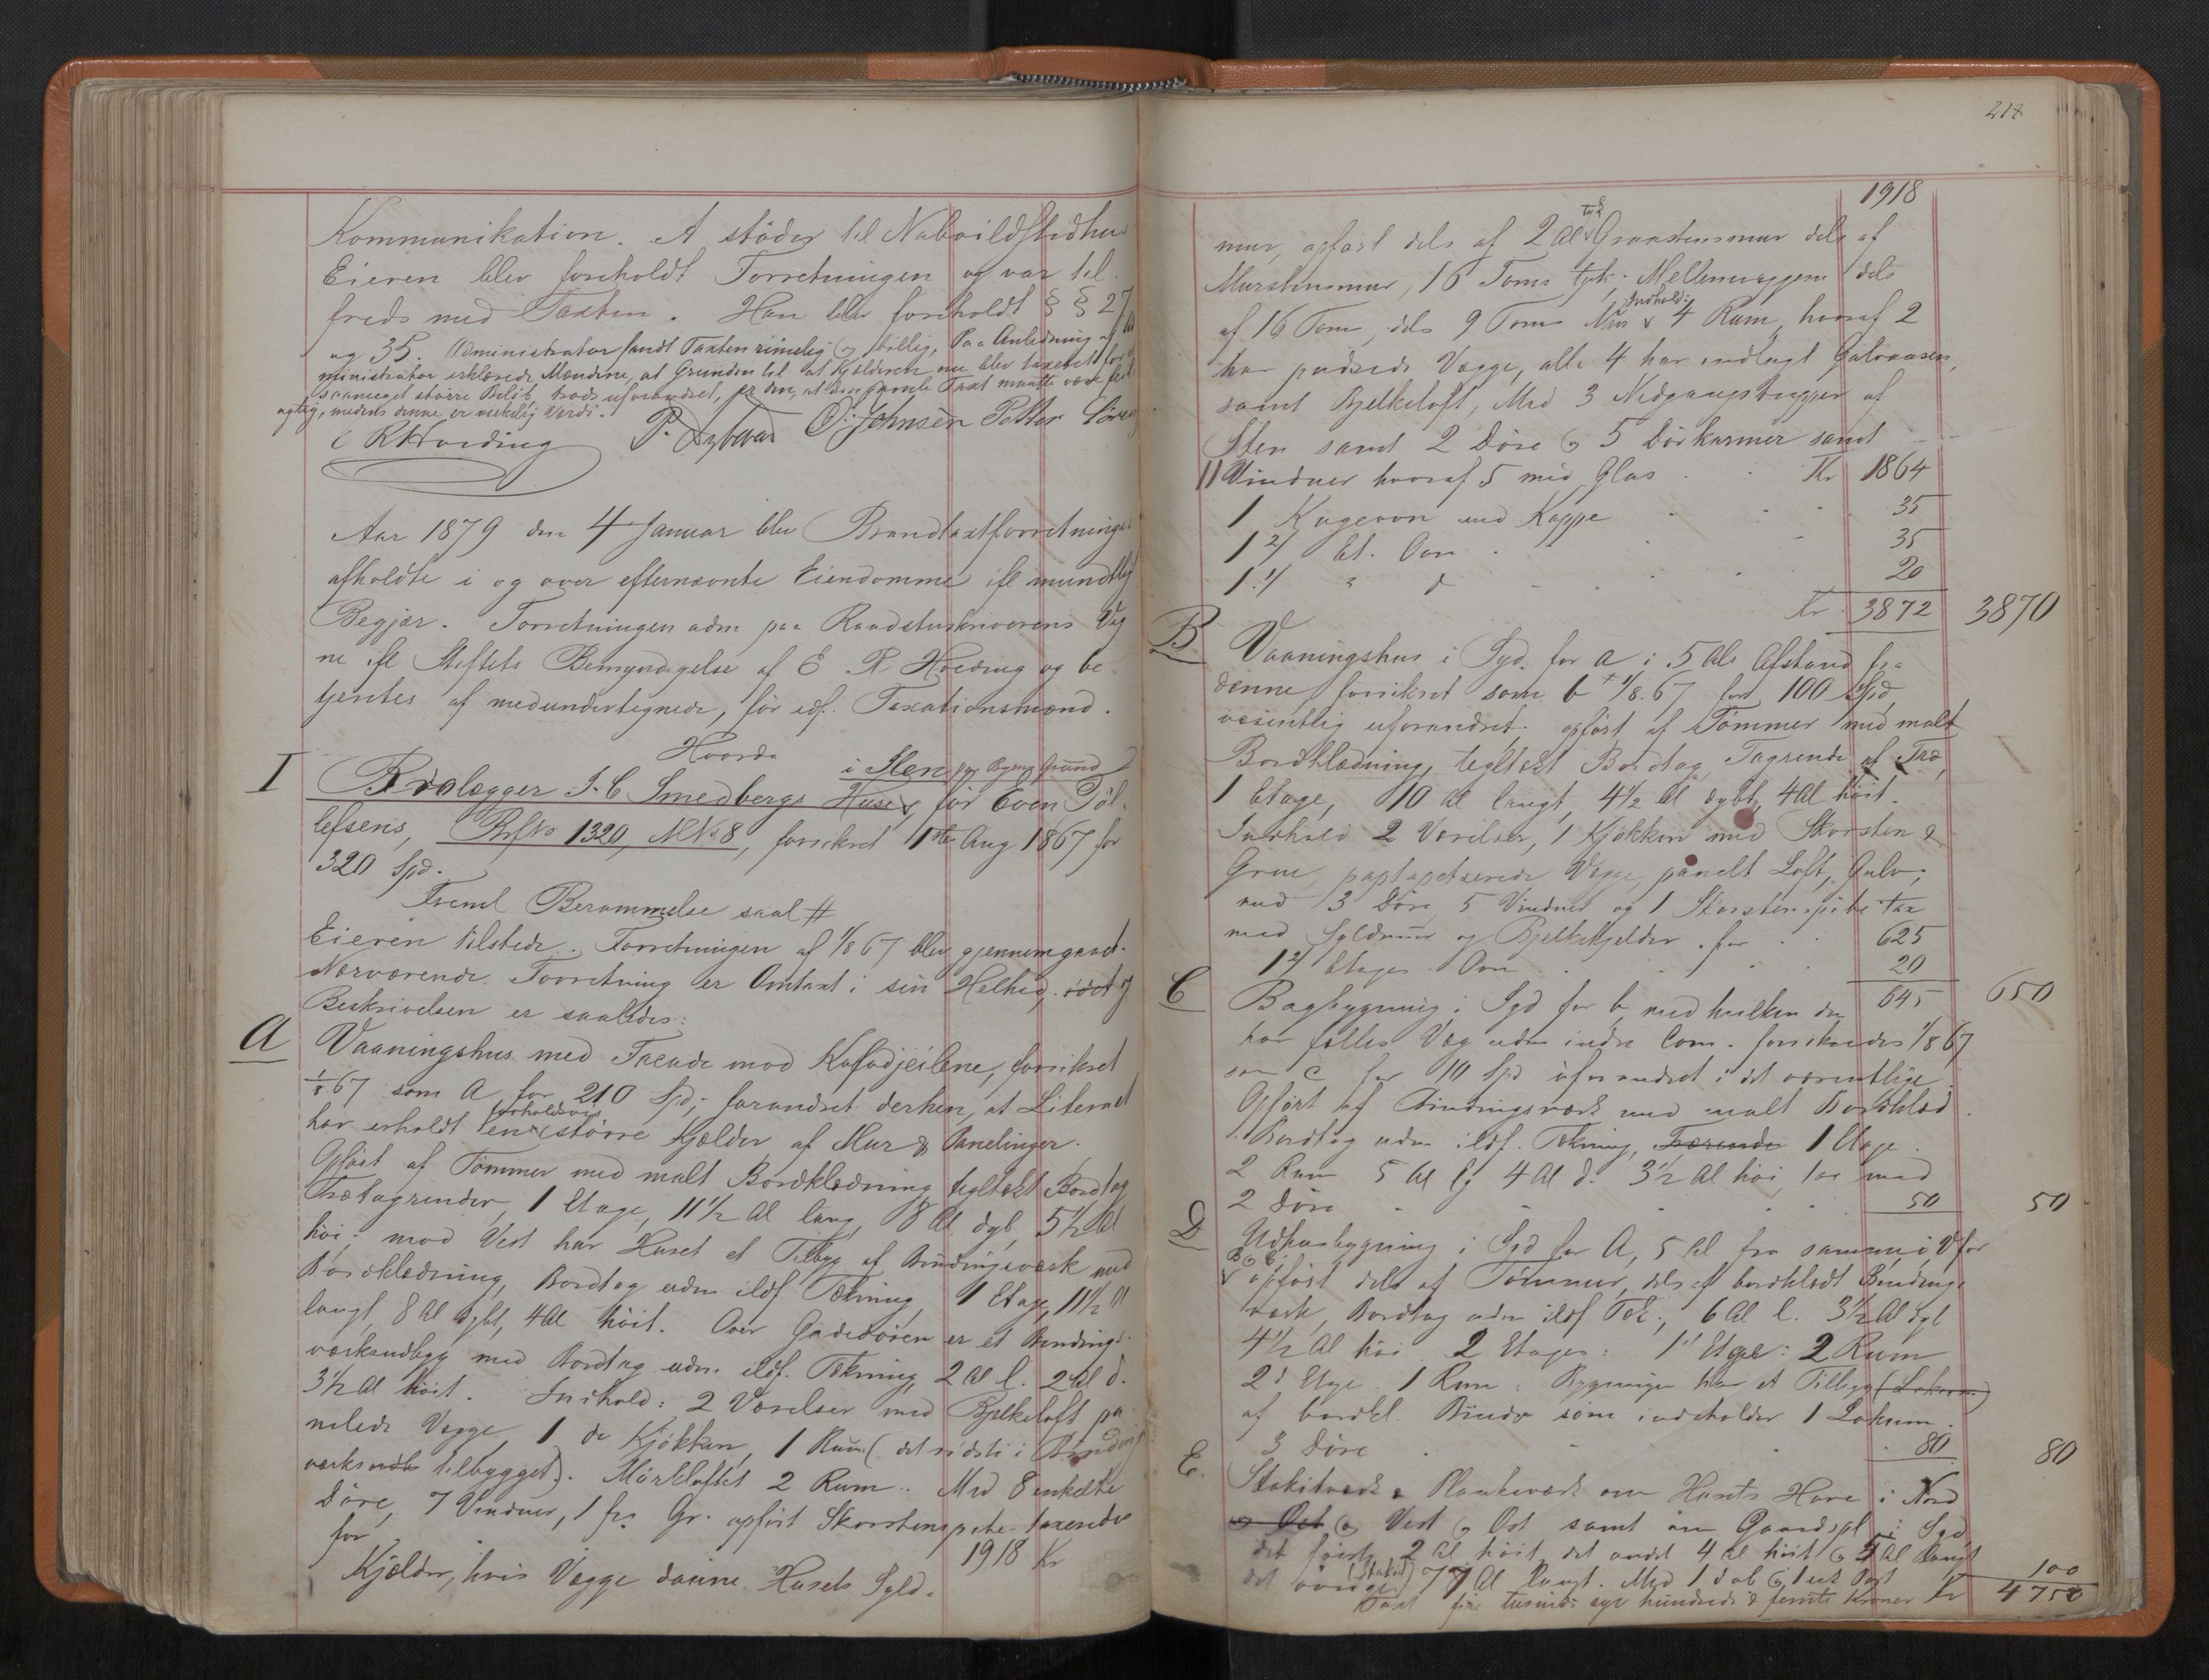 Kommunikation. A støder til Naboildstedhus
Eieren blev foreholdt Forretningen og var til
freds med Taxten. Han blev foreholdt § § 27
og 35. Administrator fandt Taxten rimelig og billig, Paa Anledning af
ministrator erklærede Mændene, at Grunden til at Kjælderen nu blev taxeret for
saameget større Beløb, trods uforandret, er den, at den gamle Taxt maatte være feil
agtig, medens denne er virkelig Værdi.
E R Hvoding O. Johnsen Petter
Aar 1879 den 4 Januar blev Brandtaxtforretninger
afholdte i og over efternævnte Eiendomme ifl mundtlig
Begjær. Forretningen adm paa Raadstuskriverens Veg
ne ifl Stiftets Bemyndigelse af E R Hvoding og be
tjentes af medundertegnede, før edf. Taxationsmænd.
Hvorda
I Brolægger J. C. Smedbergs Huse i Ilen pg Bygs Grund, før Even Tøl
lefsens, BrfNo 1320, MNo 8, forsikret 1ste Aug 1867 for
320 Spd.
Freml Berammelse saal #
Eieren tilstede. Forretningen af 1/8 67 blev gjennemgaaet.
Nærværende Forretning er Omtaxt i sin Helhed.
Beskrivelsen er saaledes:
A Vaaningshus med Facade mod Kafadjeilene, forsikret
1/8 67 som A for 210 Spd; forandret derhen, at Liternet
har erholdt en forholdsvis større Kjælder af Mur & Panelinger.
Opført af Tømmer med malt Bordklædning, tegltækt Bordtag
Trætagrender, 1 Etage, 11 1/2 Al lang, 8 Al dyb, 5 1/2 Al
høi: mod Vest har Huset et Tilbyg af Bindingsværk med
Bordklædning, Bordtag uden ildf Tækning, 1 Etage, 11 1/2 Al
langt, 8 Al dybt, 4 Al høit. Over Gadedøren er et Bindings
værksudbyg med Bordtag uden ildf. Tækning, 2 Al l. 2 Al d.
3 1/2 Al høit. Indhold: 2 Værelser med Bjelkeloft pa
nelede Vægge, 1 do Kjøkken, 1 Rum (det sidste i Bindings
værks tilbygget). Mørkloftet 2 Rum. Med 8 enkelte
Døre, 7 Vinduer, 1 fra Gr. opført Skorstenspibe taxeredes
for 1918 Kr
Kjælder, hvis Vægge danne Husets Syld.
218
1918
mur, opført dels af 2 Al tyk Graastensmur dels af
Murstensmur, 16 Toms tyk. Mellemvæggene dels
af 16 Tom, dels 9 Toms Mur Indhold: 4 Rum, hvoraf 2
har pudsede Vægge, alle 4 har indlagt Gulvaasen,
samt Bjelkeloft, Med 3 Nedgangstrapper af
Sten samt 2 Døre og 5 Dørkarmer samt
11 Vinduer hvoraf 5 med Glas Kr 1864
1 Kogeovn med Kappe 35
1 2/ Et. Ovn 35
1 1/ " d 20
Kr 3872 3870
B Vaaningshus i Syd. for A i 5 Als Afstand fra
denne, forsikret som b 1/8.67 for 100 Spd,
væsentlig uforandret. opført af Tømmer med malt
Bordklædning, tegltækt Bordtag, Tagrende af Træ,
1 Etage, 10 Al langt, 4 1/2 Al dybt, 4 Al høit.
Indhold 2 Værelser, 1 Kjøkken med Skorsten &
Grue, paptapetserede Vægge, panelt Loft, Gulv;
med 3 Døre, 5 Vinduer og 1 Skorstenspibe tax
med Syldmur og Bjelkekjelder for 625
1 2/ Etages Ovn 20
645 650
C Bagbygning i Syd for b, med hvilken den
har fælles Væg uden indre Com. forsikredes 1/8 67
som c for 10 Spd uforandret i det væsentlige
Opført af Bindingsværk med malt Bordklæd.
Bordtag uden ildf. Tækning, Trærender 1 Etage
2 Rum 5 Al lg 4 Al d. 3 1/2 Al høi, tax med
2 Døre 50 50
D Udhusbygning i Syd for A, 5 Al fra samme, i V for
B og C opført dels af Tømmer, dels af bordklædt Bindings
værk, Bordtag uden ildf Tæk., 6 Al l. 3 1/2 Al dyb
4 1/2 Al høi 2 Etages: 1' Etage: 2 Rum
2d Etage 1 Rum: Bygningen har et Tilbyg (Lokum)
af bordkl. Bindv som indeholder 1 Lokum.
3 Døre 80 80
E. Stakitværk & Plankeværk om Husets Have i Nord
og Øst og Vest og Ost samt om Gaardspl i Syd
det første 2 Al høit det andet 4 Al høit og 4 Al langt
det øvrige (Stakit) 77 Al langt. Med 1 dob og 1 enk Port 100
Taxt fire tusinde syv hundrede & femti Kroner Kr 4750